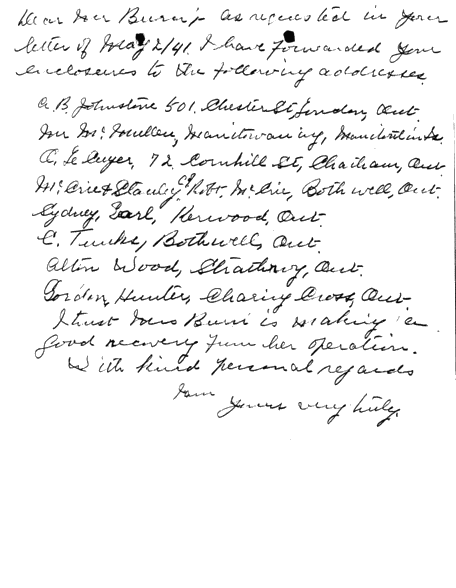 Dear Mr Burns as requested in your
letter of May 2/41. I have forwarded your
enclosures to the following addresses
A. B. Johnstone 501. Chester St, London, Ont.
Mr McMullen, Manitowaning, Manitoulin Is.
72 Cornhill St, Chatham, Ont.
McCrie & Stanley, c/o Robt. McCrie, Bothwell, Ont.
Sydney, Earl, Kerwood, Ont.
C. Tunks, Bothwell, Ont.
Alton Wood, Strathroy, Ont.
Gordon Hunter, Charing Cross, Ont
I trust Mrs Burns is making a
good recovery from her operation.
With kind personal regards
I am
Yours very truly.